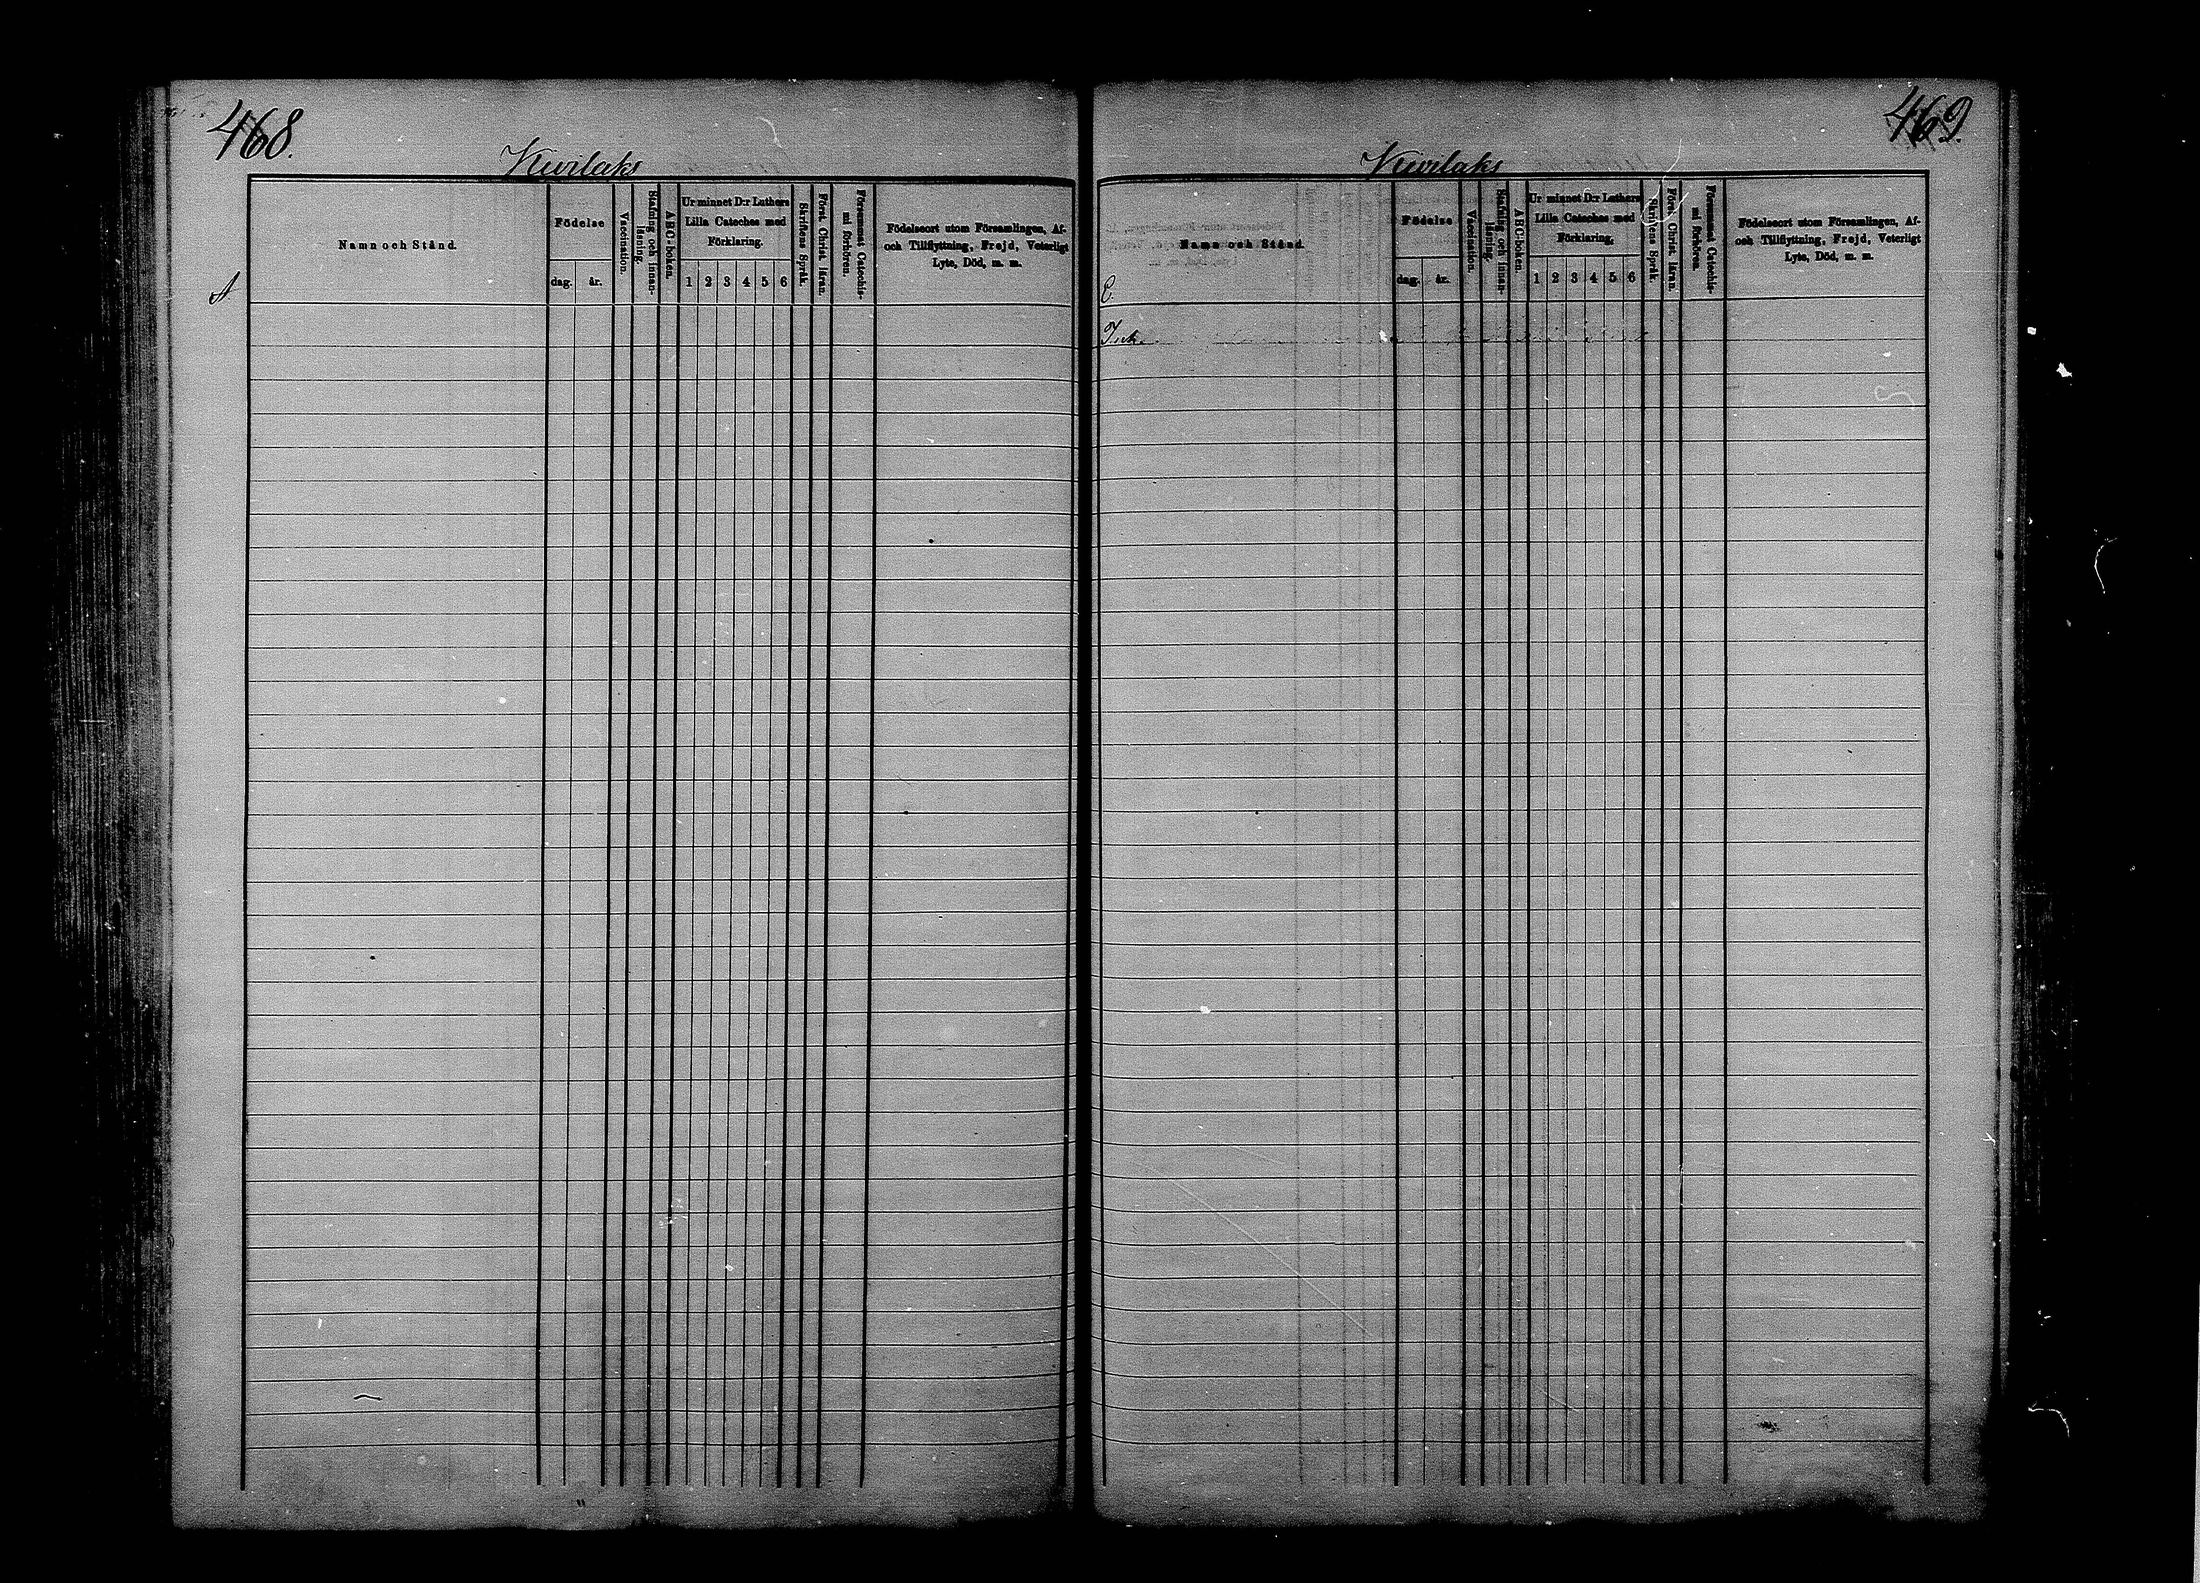 468.
Kuvilaks
Namn och Stånd.
Födelse
dag. år.
Vaccination.
Stafning och innan-
läsning.
ABC-boken.
Ur minnet D:r Luthers
Lilla Cateches med
Förklaring.
1 2 3 4 5 6
Skriftens Språk.
Först. Christ. läran.
Försummat Catechis-
mi förhören.
Födelseort utom Församlingen, Af-
och Tillflyttning, Frejd, Veterligt
Lyte, Död, m. m.
469
Kuvilaks
Namn och Stånd.
Födelse
dag. år.
Vaccination.
Stafning och innan-
läsning.
ABC-boken.
Ur minnet D:r Luthers
Lilla Cateches med
Förklaring.
1 2 3 4 5 6
Skriftens Språk.
Först. Christ. läran.
Försummat Catechis-
mi förhören.
Födelseort utom Församlingen, Af-
och Tillflyttning, Frejd, Veterligt
Lyte, Död, m. m.
E.